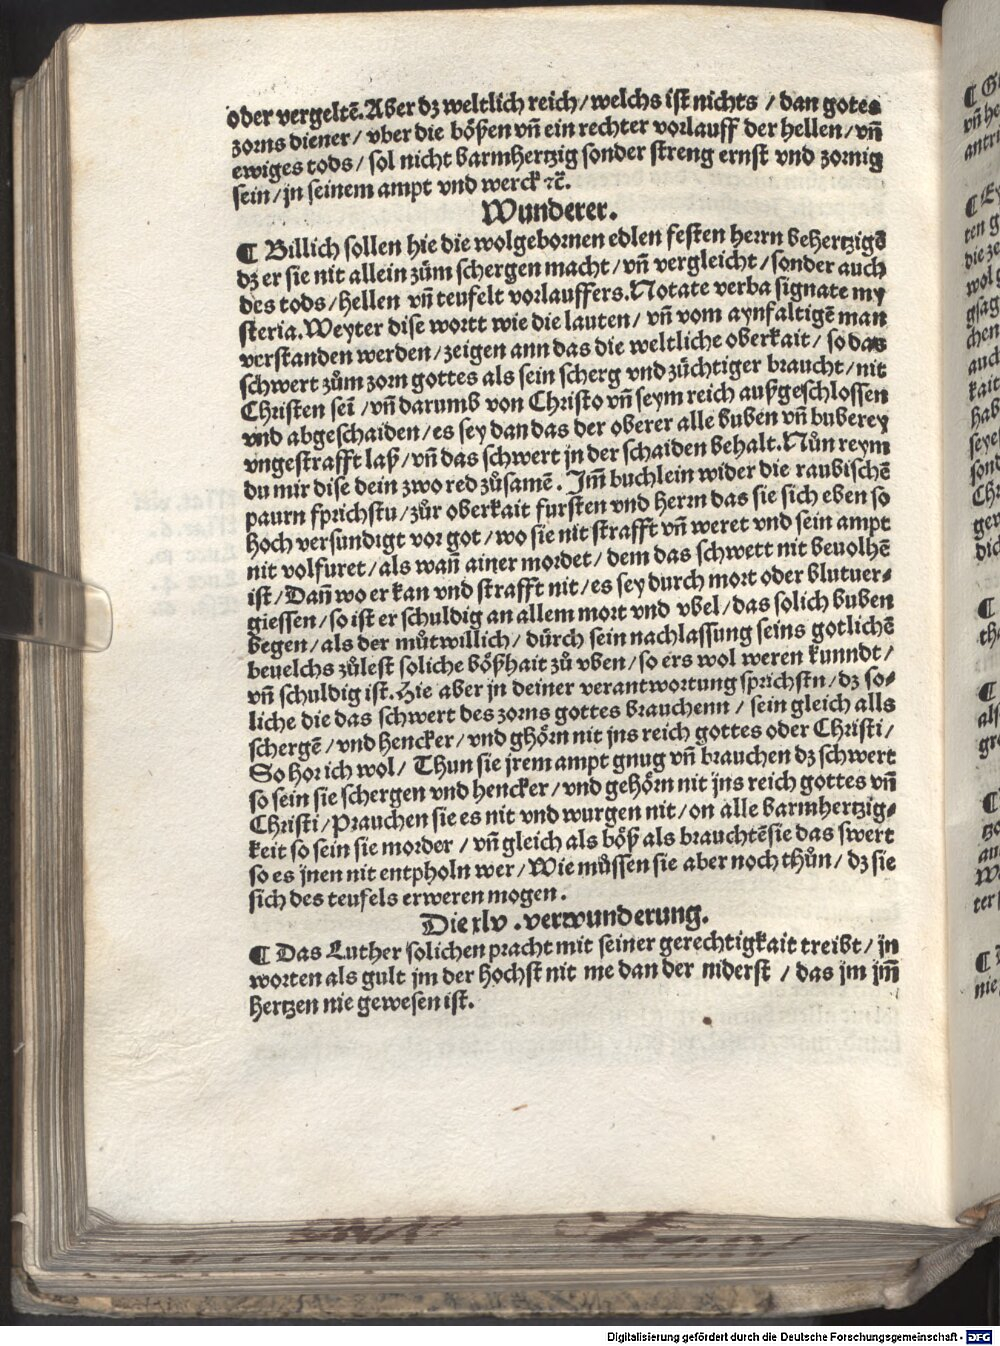 oder vergeltē. Aber dz weltlich reich / welchs ist nichts / dan gotes
zorns diener / vber die bößen vñ ein rechter vorlauff der hellen / vñ
ewiges tods / sol nicht barmhertzig sonder streng ernst vnd zornig
sein / jn seinem ampt vnd werck ꝛc̄.
Wunderer.
¶ Billich sollen hie die wolgebornen edlen festen herrn behertzigē
dz er sie nit allein zům schergen macht / vñ vergleicht / sonder auch
des tods / hellen vñ teufelt vorlauffers. Notate verba signate my
steria. Weyter dise wortt wie die lauten / vñ vom aynfaltigē man
verstanden werden / zeigen ann das die weltliche oberkait / so das
schwert zům zorn gottes als sein scherg vnd züchtiger braucht / nit
Christen seī / vñ darumb von Christo vñ seym reich außgeschlossen
vnd abgeschaiden / es sey dan das der oberer alle buben vñ buberey
vngestrafft laß / vñ das schwert jn der schaiden behalt. Nůn reym
du mir dise dein zwo red zůsamē. Im̄ buchlein wider die raubischē
paurn fprichstu / zůr oberkait fursten vnd herrn das sie sich eben so
hoch versundigt vor got / wo sie nit strafft vñ weret vnd sein ampt
nit volfuret / als wañ ainer mordet / dem das schwett nit beuolhē
ist / Dañ wo er kan vnd strafft nit / es sey durch mort oder blutuer⸗
giessen / so ist er schuldig an allem mort vnd vbel / das solich buben
begen / als der můtwillich / dürch sein nachlassung seins gotlichē
beuelchs zůlest soliche bößhait zů vben / so ers wol weren kunndt /
vñ schuldig ist. Hie aber jn deiner verantwortung sprichstn / dz so⸗
liche die das schwert des zorns gottes brauchenn / sein gleich alls
schergē / vnd hencker / vnd ghörn nit jns reich gottes oder Christi /
So hor ich wol / Thun sie jrem ampt gnug vñ brauchen dz schwert
so sein sie schergen vnd hencker / vnd gehörn nit jns reich gottes vñ
Christi / Prauchen sie es nit vnd wurgen nit / on alle barmhertzig⸗
keit so sein sie morder / vñ gleich als böß als brauchtē sie das swert
so es jnen nit entpholn wer / Wie můssen sie aber noch thůn / dz sie
sich des teufels erweren mogen.
Die xlv. verwunderung.
¶ Das Luther solichen pracht mit seiner gerechtigkait treibt / jn
worten als gult jm der hochst nit me dan der niderst / das jm jm̄
hertzen nie gewesen ist.
Digitalisierung gefördert durch die Deutsche Forschungsgemeinschaft - DFG